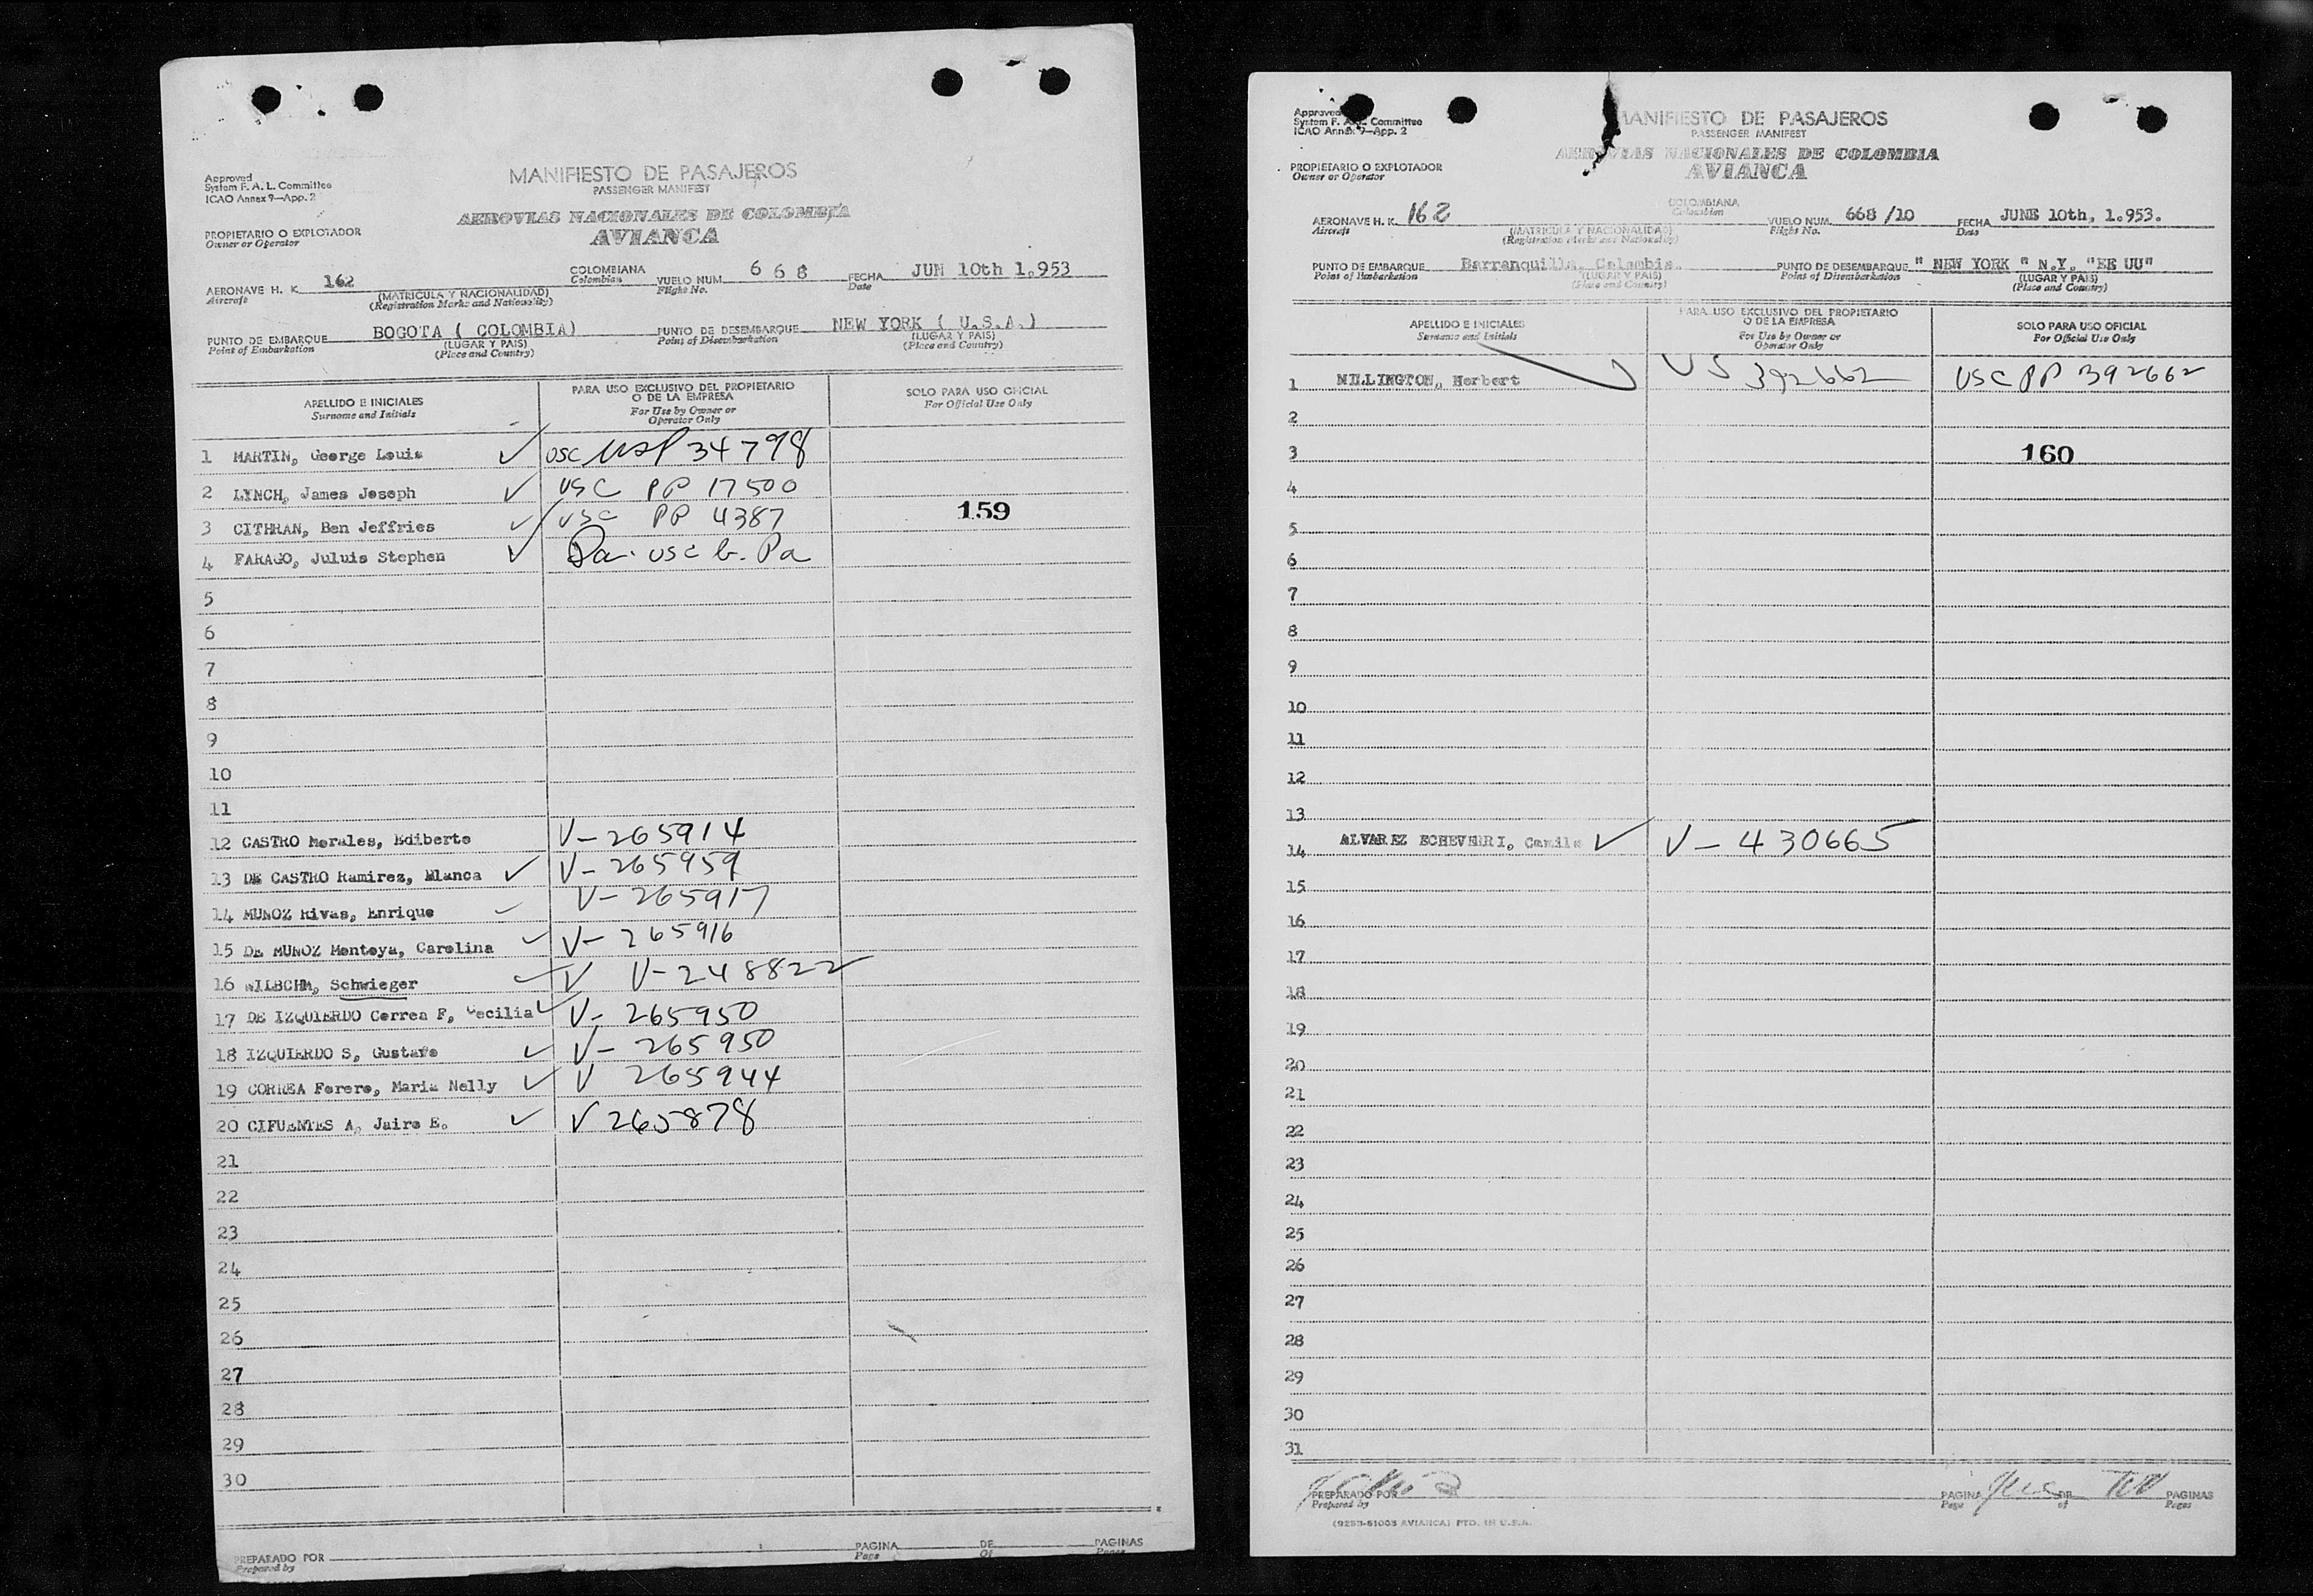 Approved
System F. A. L. Committee
ICAO Annex 9—App. 2
MANIFIESTO DE PASAJEROS
PASSENGER MANIFEST
AEROVIAS NACIONALES DE COLOMBIA
AVIANCA
PROPIETARIO O EXPLOTADOR
Owner or Operator
AERONAVE H. K. 162 COLOMBIANA VUELO NUM. 668 FECHA JUN 10th 1.953
Aircraft (MATRICULA Y NACIONALIDAD) Colombian Flight No. Date
(Registration Marks and Nationality)
PUNTO DE EMBARQUE BOGOTA ( COLOMBIA) PUNTO DE DESEMBARQUE NEW YORK ( U.S.A.)
Point of Embarkation (LUGAR Y PAIS) Point of Disembarkation (LUGAR Y PAIS)
(Place and Country) (Place and Country)
APELLIDO E INICIALES PARA USO EXCLUSIVO DEL PROPIETARIO O DE LA EMPRESA SOLO PARA USO OFICIAL
Surname and Initials For Use by Owner or Operator Only For Official Use Only
1 MARTIN, George Louis USC 34798
2 LYNCH, James Joseph USC PP 17500
3 CITHRAN, Ben Jeffries USC PP 4387 159
4 FARAGO, Juluis Stephen USC b. Pa
5
6
7
8
9
10
11
12 CASTRO Morales, Ediberto V-265914
13 DE CASTRO Ramirez, Blanca V-265959
14 MUNOZ Rivas, Enrique V-265917
15 DE MUNOZ Montoya, Carolina V-265916
16 WILBCHM, Schwieger V V-248822
17 DE IZQUIERDO Correa F, Cecilia V- 265950
18 IZQUIERDO S, Gustavo V- 265950
19 CORREA Forero, Maria Nelly V 265944
20 CIFUENTES A, Jairo E. V 265878
21
22
23
24
25
26
27
28
29
30
PREPARADO POR PAGINA DE PAGINAS
Prepared by Page Of Pages
Approved
System F. A. L. Committee
ICAO Annex 9—App. 2
MANIFIESTO DE PASAJEROS
PASSENGER MANIFEST
AEROVIAS NACIONALES DE COLOMBIA
AVIANCA
PROPIETARIO O EXPLOTADOR
Owner or Operator
AERONAVE H. K. 162 COLOMBIANA VUELO NUM. 668/10 FECHA JUNE 10th, 1.953.
Aircraft (MATRICULA Y NACIONALIDAD) Colombian Flight No. Date
(Registration Marks and Nationality)
PUNTO DE EMBARQUE Barranquilla, Colombia. PUNTO DE DESEMBARQUE " NEW YORK " N.Y. "EE UU"
Point of Embarkation (LUGAR Y PAIS) Point of Disembarkation (LUGAR Y PAIS)
(Place and Country) (Place and Country)
APELLIDO E INICIALES PARA USO EXCLUSIVO DEL PROPIETARIO O DE LA EMPRESA SOLO PARA USO OFICIAL
Surname and Initials For Use by Owner or Operator Only For Official Use Only
1 MILLINGTON, Herbert US 392662 USC PP 392662
2
3 160
4
5
6
7
8
9
10
11
12
13
14 ALVAREZ ECHEVERRI, Camilo V-430665
15
16
17
18
19
20
21
22
23
24
25
26
27
28
29
30
31
PREPARADO POR PAGINA DE PAGINAS
Prepared by Page of Pages
(9253-61003 AVIANCA) PTD. IN U.S.A.